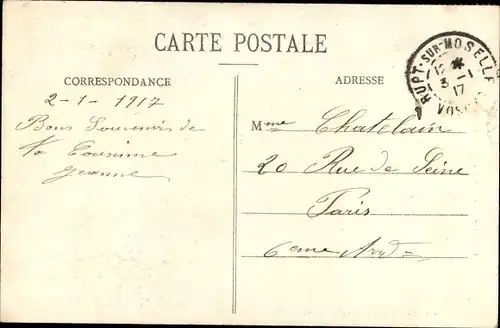 CARTE POSTALE
RUPT-SUR-MOSELLE
12 *
3 -1
17
VOSGES
CORRESPONDANCE
ADRESSE
2-1-1917
Bons Souvenirs de
ta Cousine
Jeanne
Mme Chatelain
20 Rue de Seine
Paris
6eme Arrd-